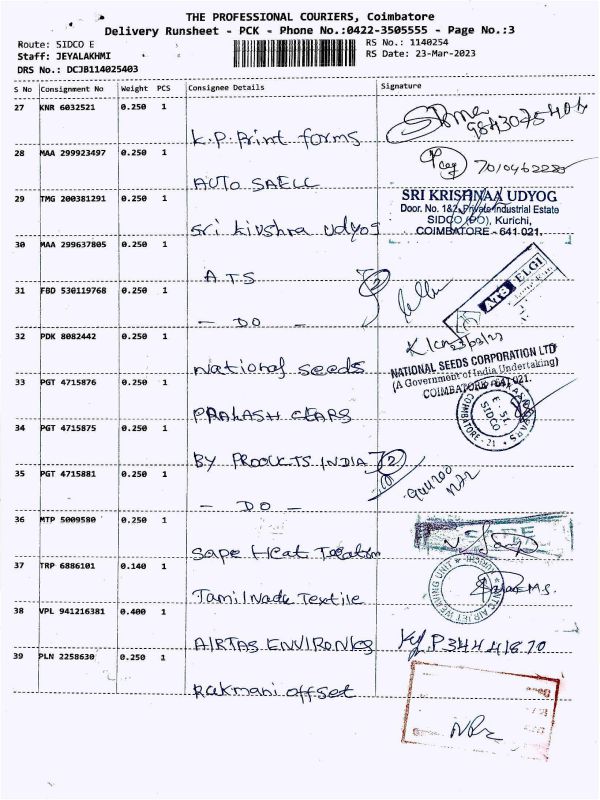 THE PROFESSIONAL COURIERS, Coimbatore
Delivery Runsheet - PCK - Phone No.:0422-3505555 - Page No.:3
Route: SIDCO E
RS No.: 1140254
Staff: JEYALAKHMI
RS Date: 23-Mar-2023
DRS No.: DCJB114025403
S No Consignment No Weight PCS Consignee Details Signature
27 KNR 6032521 0.250 1
K.P. Print forms
28 MAA 299923497 0.250 1
7010462280
AUTO SAELL
29 TMG 200381291 0.250 1
SRI KRISHNAA UDYOG
Door. No. 1&2, Private Industrial Estate
SIDCO (PO), Kurichi,
COIMBATORE - 641 021.
Sri Kivshra Udyog
30 MAA 299637805 0.250 1
A.T.S
2
ATS ELGI
31 FBD 530119768 0.250 1
- DO -
32 PDK 8082442 0.250 1
NATIONAL SEEDS CORPORATION LTD
(A Government of India Undertaking)
COIMBATORE - 641 021.
National Seeds
33 PGT 4715876 0.250 1
PRAKASH GEARS
E-51,
SIDCO
COIMBATORE - 21
34 PGT 4715875 0.250 1
BY PRODUCTS INDIA
2
35 PGT 4715881 0.250 1
- DO -
36 MTP 5009580 0.250 1
Sape Heat Treatm
37 TRP 6886101 0.140 1
AIR JET WEAVING UNIT
Tamil Nadu Textile
38 VPL 941216381 0.400 1
AIRTAS ENVIRONKS
39 PLN 2258630 0.250 1
Rukmani offset